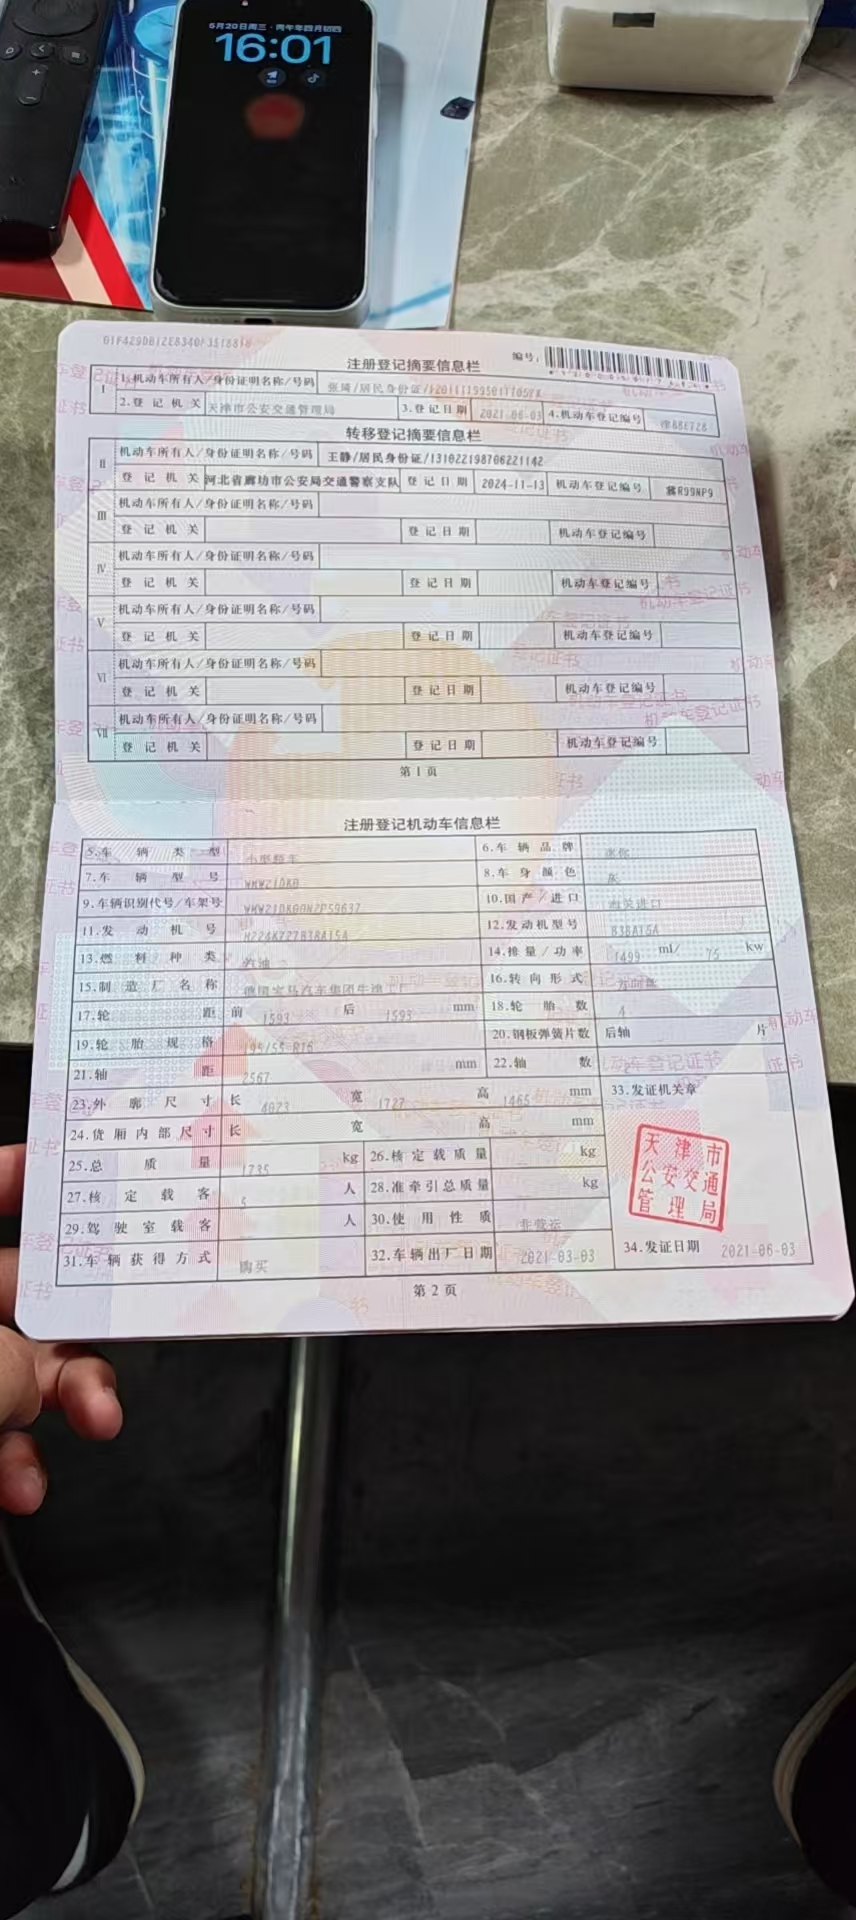 5月20日周三·丙午年四月初四
16:01
编号:
注册登记摘要信息栏
I 1.机动车所有人/身份证明名称/号码
2.登记机关 天津市公安交通管理局 3.登记日期 2021-06-03 4.机动车登记编号
转移登记摘要信息栏
II 机动车所有人/身份证明名称/号码 王静/居民身份证/131022198706221142
登记机关 河北省廊坊市公安局交通警察支队 登记日期 2024-11-13 机动车登记编号 冀R99NP9
III 机动车所有人/身份证明名称/号码
登记机关 登记日期 机动车登记编号
IV 机动车所有人/身份证明名称/号码
登记机关 登记日期 机动车登记编号
V 机动车所有人/身份证明名称/号码
登记机关 登记日期 机动车登记编号
VI 机动车所有人/身份证明名称/号码
登记机关 登记日期 机动车登记编号
VII 机动车所有人/身份证明名称/号码
登记机关 登记日期 机动车登记编号
第1页
注册登记机动车信息栏
5.车辆类型 小型轿车 6.车辆品牌 迷你
7.车辆型号 8.车身颜色 灰
9.车辆识别代号/车架号 10.国产/进口
11.发动机号 12.发动机型号 B38A15A
13.燃料种类 汽油 14.排量/功率 1499 ml/ 75 kw
15.制造厂名称 16.转向形式 方向盘
17.轮距 前 1593 后 1593 mm 18.轮胎数 4
19.轮胎规格 195/55 R16 20.钢板弹簧片数 后轴 片
21.轴距 2567 mm 22.轴数
23.外廓尺寸 长 4023 宽 1727 高 1465 mm 33.发证机关章
24.货厢内部尺寸 长 宽 高 mm
25.总质量 1735 kg 26.核定载质量 kg
27.核定载客 5 人 28.准牵引总质量 kg
29.驾驶室载客 人 30.使用性质 非营运
31.车辆获得方式 购买 32.车辆出厂日期 2021-03-03 34.发证日期 2021-06-03
天津市
公安交通
管理局
第2页